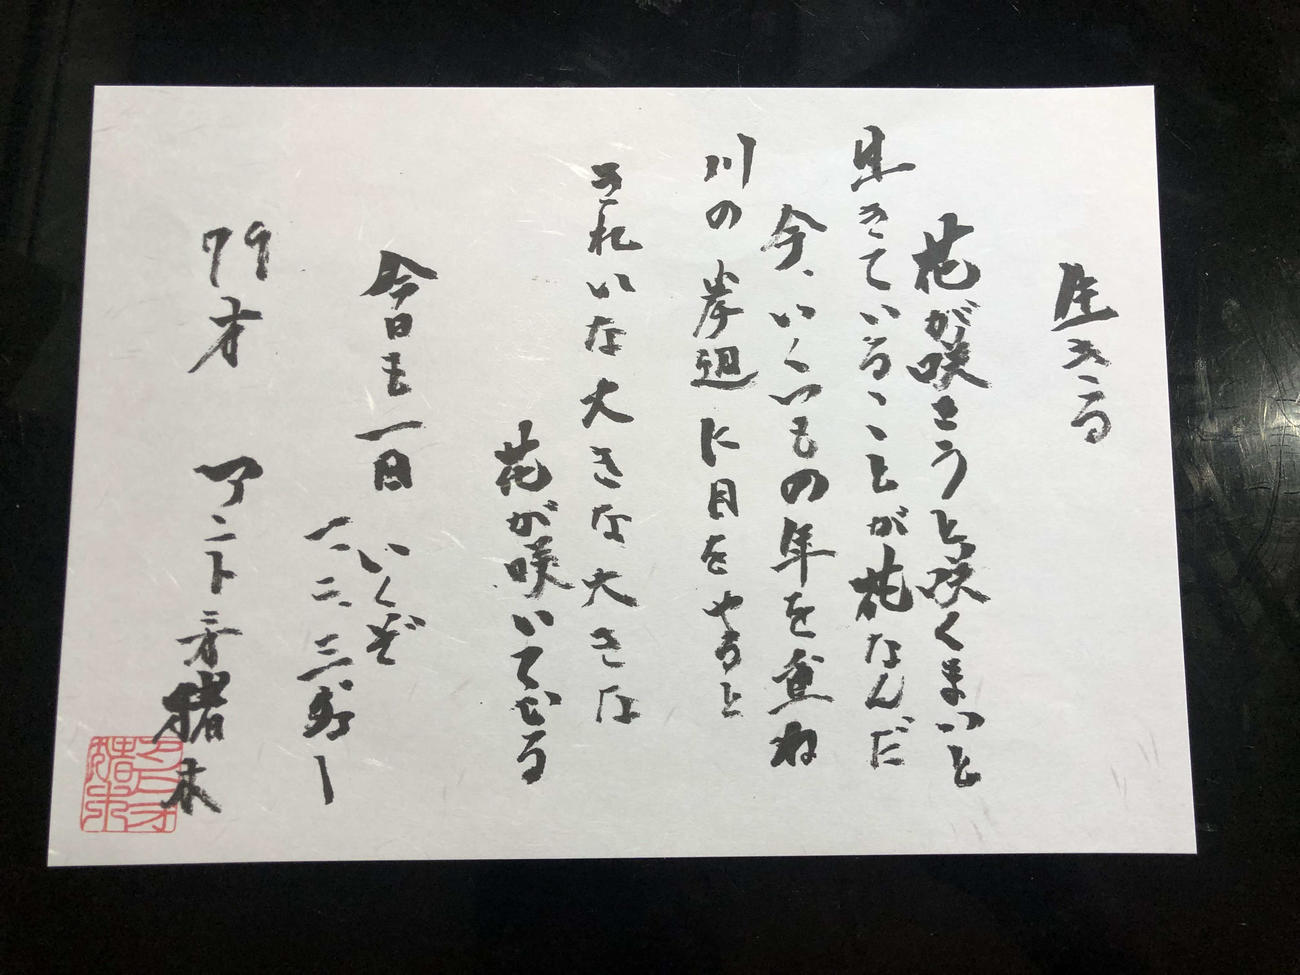 生きる
花が咲こうと咲くまいと
生きていることが花なんだ
今、いくつもの年を重ね
川の岸辺に目をやると
きれいな大きな大きな
花が咲いてむる
今日も一日いくぞ
一、二、三ダー
79才 アントニオ猪木